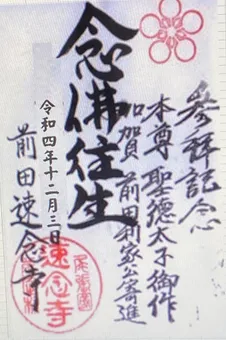 参拝記念
本尊聖徳太子御作
加賀 前田利家公寄進
念佛往生
令和四年十二月三日
前田速念寺
速念寺